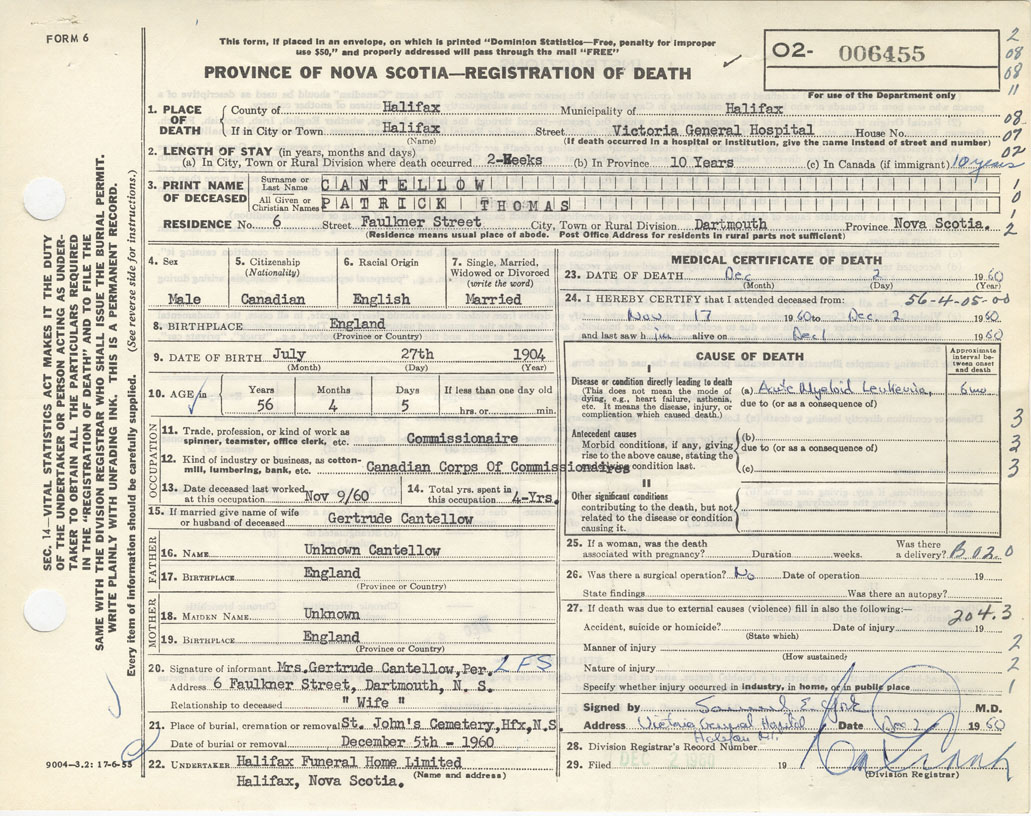 FORM 6
This form, if placed in an envelope, on which is printed "Dominion Statistics—Free, penalty for improper
use $50," and properly addressed will pass through the mail "FREE"
PROVINCE OF NOVA SCOTIA—REGISTRATION OF DEATH
O2- 006455
For use of the Department only
2
08
08
11
08
07
02
1
0
1
2
1. PLACE OF DEATH
County of Halifax Municipality of Halifax
If in City or Town Halifax Street Victoria General Hospital House No.
(Name) (If death occurred in a hospital or institution, give the name instead of street and number)
2. LENGTH OF STAY (in years, months and days)
(a) In City, Town or Rural Division where death occurred 2-Weeks (b) In Province 10 Years (c) In Canada (if immigrant) 10 years
3. PRINT NAME OF DECEASED
Surname or Last Name CANTELLOW
All Given or Christian Names PATRICK THOMAS
RESIDENCE No. 6 Street Faulkner Street City, Town or Rural Division Dartmouth Province Nova Scotia.
(Residence means usual place of abode. Post Office Address for residents in rural parts not sufficient)
4. Sex
Male
5. Citizenship
(Nationality)
Canadian
6. Racial Origin
English
7. Single, Married,
Widowed or Divorced
(write the word)
Married
8. BIRTHPLACE England
(Province or Country)
9. DATE OF BIRTH July 27th 1904
(Month) (Day) (Year)
10. AGE in
Years Months Days If less than one day old
56 4 5 hrs. or min.
OCCUPATION
11. Trade, profession, or kind of work as
spinner, teamster, office clerk, etc. Commissionaire
12. Kind of industry or business, as cotton-
mill, lumbering, bank, etc. Canadian Corps Of Commissionaires
13. Date deceased last worked
at this occupation Nov 9/60
14. Total yrs. spent in
this occupation 4-Yrs.
15. If married give name of wife
or husband of deceased Gertrude Cantellow
FATHER
16. NAME Unknown Cantellow
17. BIRTHPLACE England
(Province or Country)
MOTHER
18. MAIDEN NAME Unknown
19. BIRTHPLACE England
(Province or Country)
20. Signature of informant Mrs.Gertrude Cantellow,Per. LFS
Address 6 Faulkner Street, Dartmouth, N. S.
Relationship to deceased " Wife "
21. Place of burial, cremation or removal St. John's Cemetery,Hfx,N.S.
Date of burial or removal December 5th - 1960
22. UNDERTAKER Halifax Funeral Home Limited
(Name and address)
Halifax, Nova Scotia.
MEDICAL CERTIFICATE OF DEATH
23. DATE OF DEATH Dec 2 1960
(Month) (Day) (Year)
24. I HEREBY CERTIFY that I attended deceased from: 56-4-05-00
Nov 17 1960 to Dec. 2 1960
and last saw him alive on Dec 1 1960
CAUSE OF DEATH
Approximate interval between onset and death
I
Disease or condition directly leading to death
(This does not mean the mode of
dying, e.g., heart failure, asthenia,
etc. It means the disease, injury, or
complication which caused death.)
(a) Acute Myeloid Leukemia, 6 mo
due to (or as a consequence of)
Antecedent causes
Morbid conditions, if any, giving
rise to the above cause, stating the
underlying condition last.
(b)
due to (or as a consequence of)
(c)
II
Other significant conditions
contributing to the death, but not
related to the disease or condition
causing it.
3
3
3
25. If a woman, was the death
associated with pregnancy? Duration weeks. Was there
a delivery? B 02.0
26. Was there a surgical operation? No Date of operation 19
State findings Was there an autopsy?
27. If death was due to external causes (violence) fill in also the following:—
204.3
Accident, suicide or homicide? Date of injury 19
(State which)
Manner of injury 2
(How sustained)
Nature of injury 2
Specify whether injury occurred in industry, in home, or in public place 1
Signed by M.D.
Address Victoria General Hospital Date Dec 2 1960
28. Division Registrar's Record Number
29. Filed DEC 2 1960 19
(Division Registrar)
9004—3.2: 17-6-55
SEC. 14—VITAL STATISTICS ACT MAKES IT THE DUTY
OF THE UNDERTAKER OR PERSON ACTING AS UNDER-
TAKER TO OBTAIN ALL THE PARTICULARS REQUIRED
IN THE "REGISTRATION OF DEATH" AND TO FILE THE
SAME WITH THE DIVISION REGISTRAR WHO SHALL ISSUE THE BURIAL PERMIT.
WRITE PLAINLY WITH UNFADING INK. THIS IS A PERMANENT RECORD.
Every item of information should be carefully supplied. (See reverse side for instructions.)